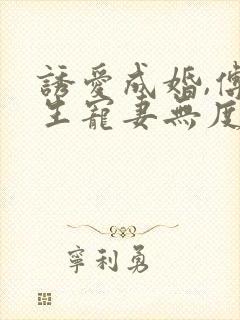 誘愛成婚,傅
生寵妻無度
寧利勇